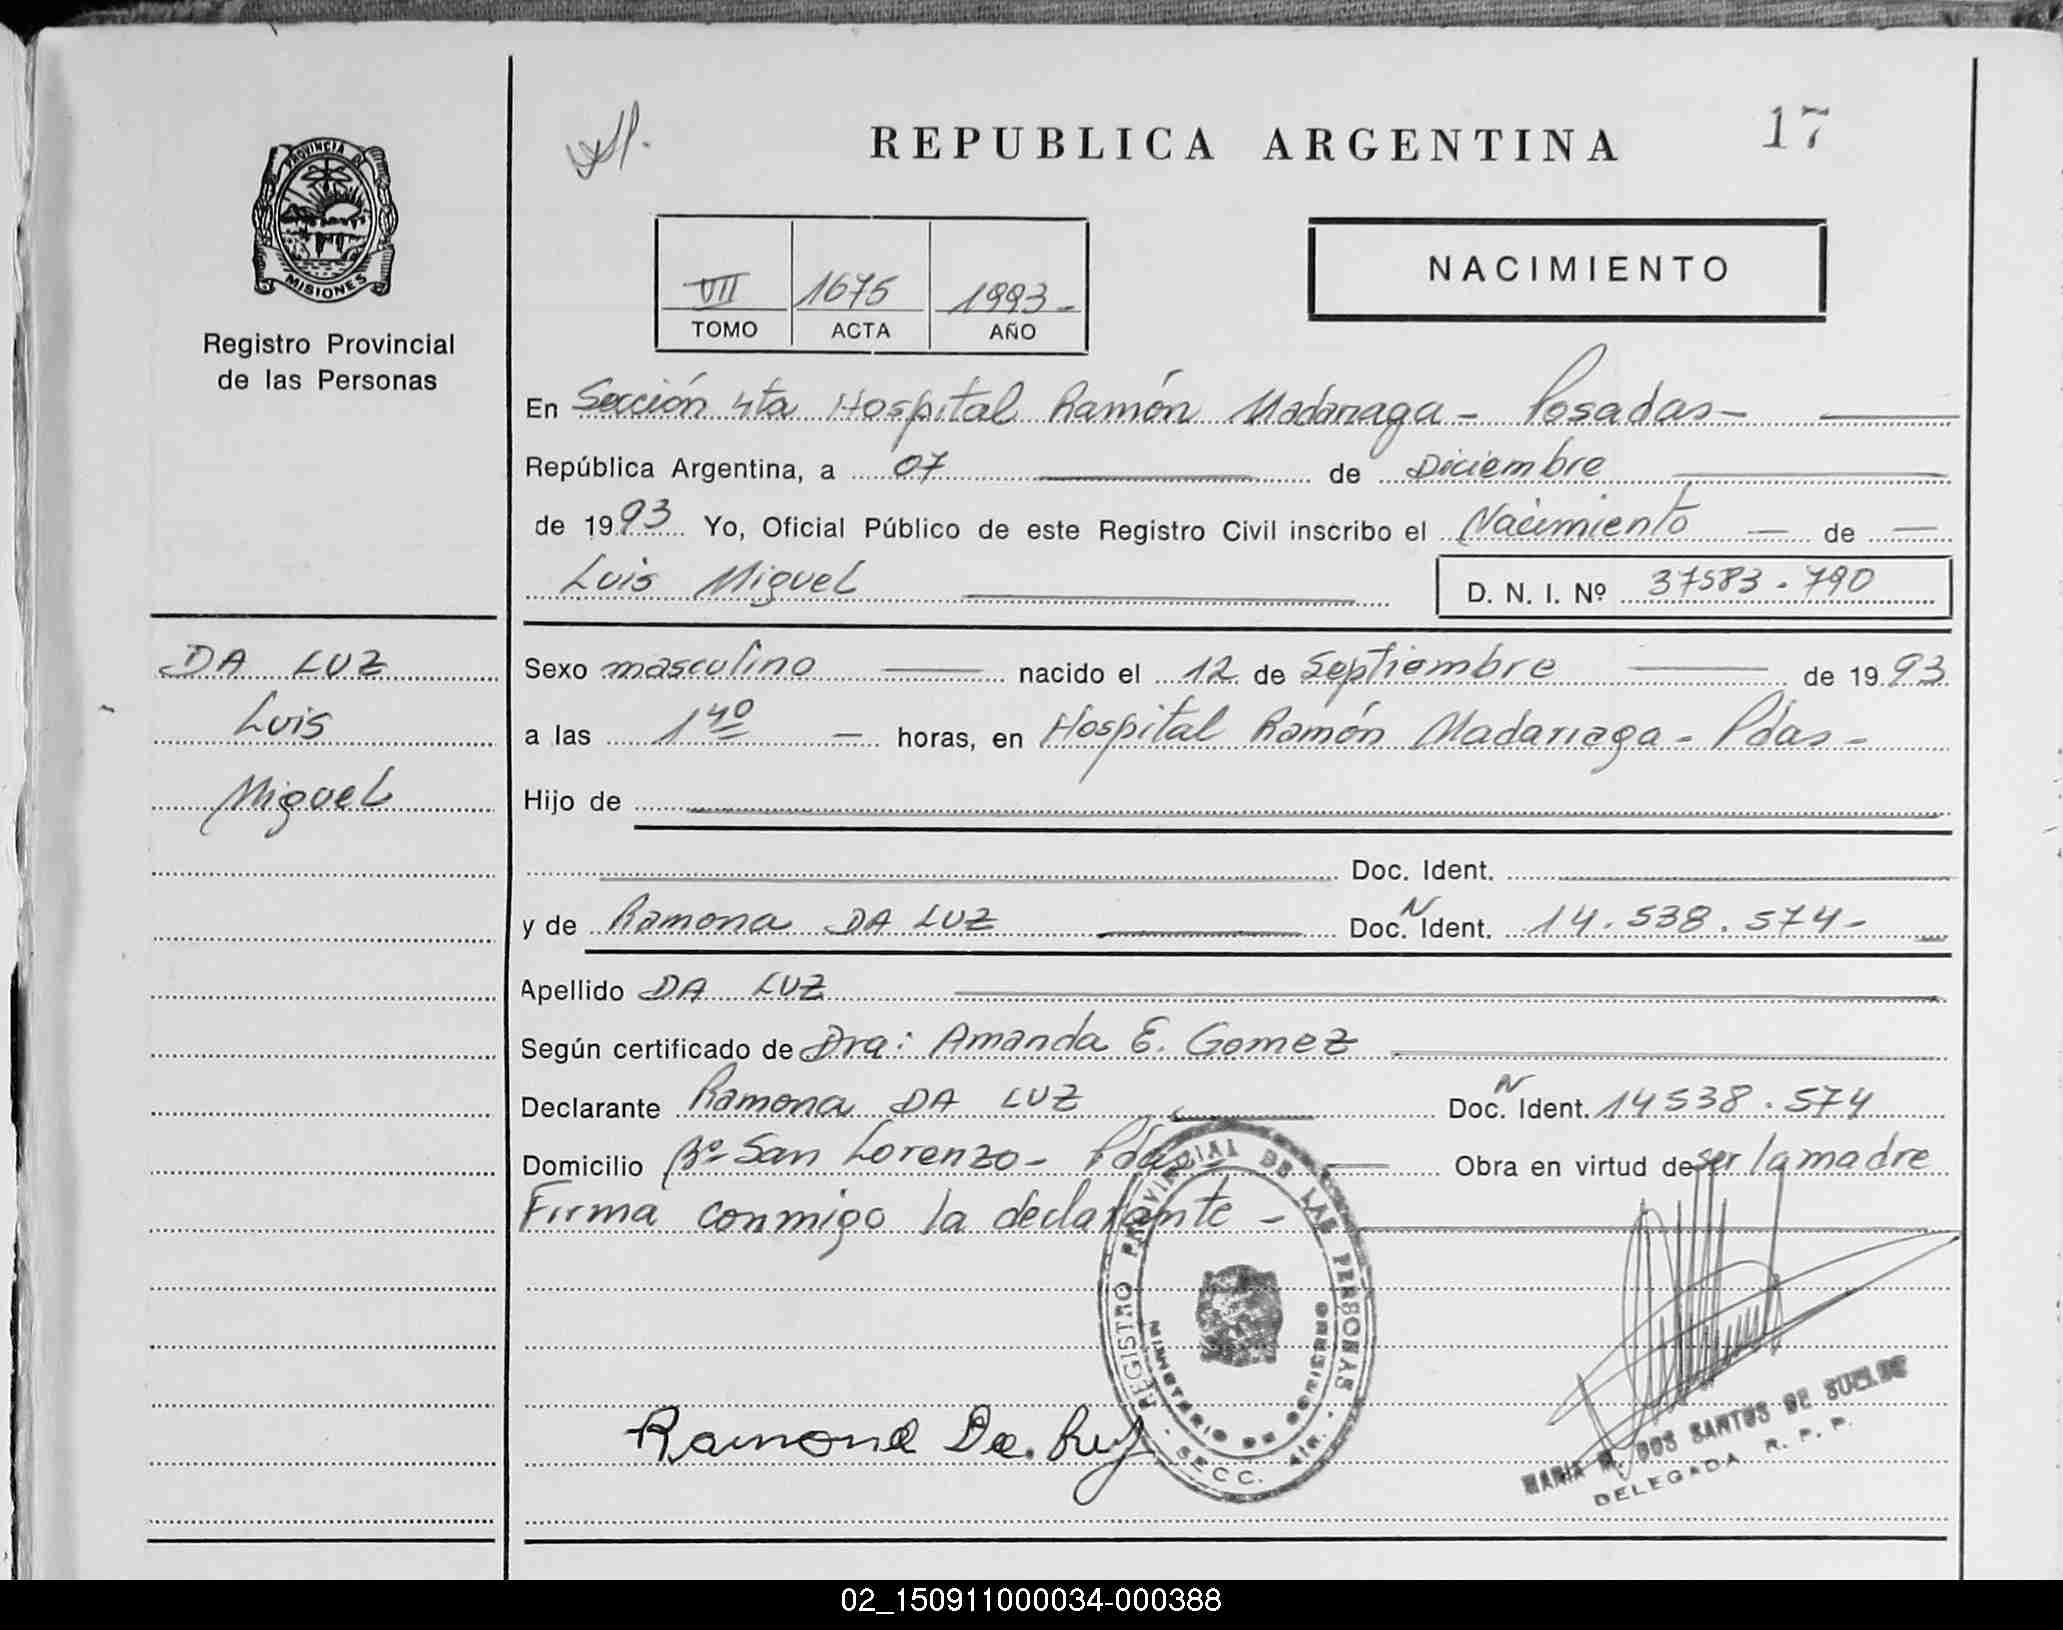 REPUBLICA ARGENTINA
17
PROVINCIA DE
MISIONES
Registro Provincial
de las Personas
VII 1675 1993-
TOMO ACTA AÑO
NACIMIENTO
En Sección 4ta Hospital Ramón Madariaga - Posadas -
República Argentina, a 07 de Diciembre
de 1993 Yo, Oficial Público de este Registro Civil inscribo el Nacimiento de
Luis Miguel D. N. I. Nº 37583.790
DA LUZ
Luis
Miguel
Sexo masculino nacido el 12 de Septiembre de 1993
a las 1 40 horas, en Hospital Ramón Madariaga - Pdas -
Hijo de
Doc. Ident.
y de Ramona DA LUZ Doc. N Ident. 14.538.574-
Apellido DA LUZ
Según certificado de Dra: Amanda E. Gomez
Declarante Ramona DA LUZ Doc. N Ident. 14538.574
Domicilio Bº San Lorenzo - Pdas Obra en virtud de ser la madre
Firma conmigo la declarante -
REGISTRO PROVINCIAL DE LAS PERSONAS
MINISTERIO DE GOBIERNO
SECC. 4ta.
Ramona Da Luz
MARIA M. DOS SANTOS DE SUELDO
DELEGADA R. P. P.
02_150911000034-000388